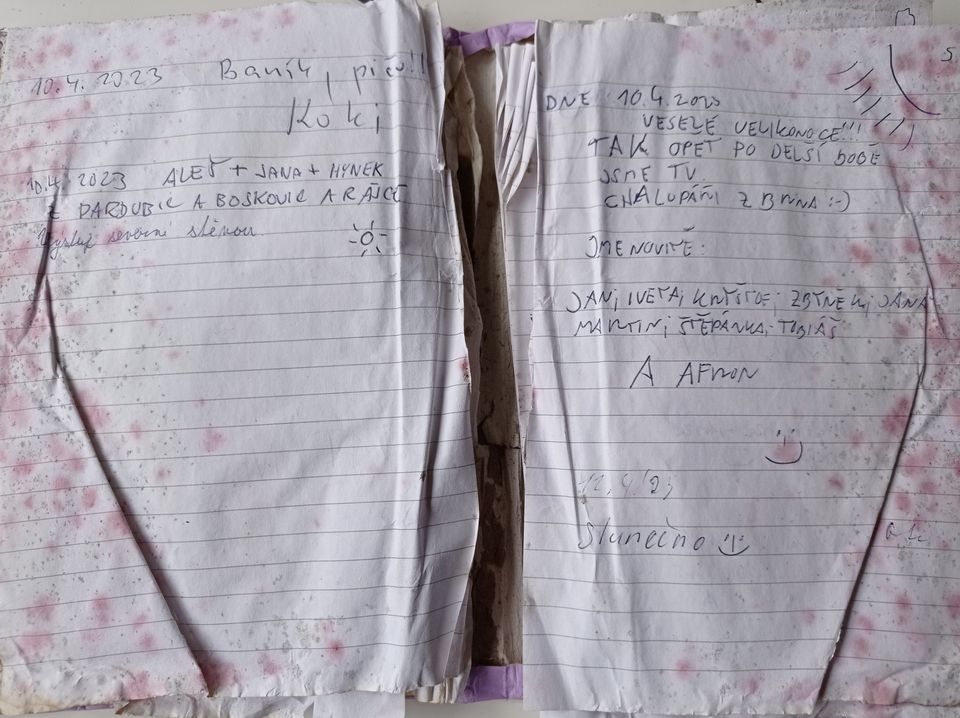 10.4.2023 Baník, piču!!
Koki
10.4. 2023 ALEŠ + JANA + HYNEK
Z PARDUBIC A BOSKOVIC A RÁJCE
Výstup severní stěnou
DNE 10.4.2020
VESELÉ VELIKONOCE!!!
TAK OPĚT PO DELŠÍ DOBĚ
JSME TU
CHALUPÁŘI Z BRNA :-)
JMENOVITĚ:
JAN, IVETA, ZBYNĚK, JANA
MARTIN, ŠTĚPÁNKA, TOBIÁŠ
A AFRON
12.4.'23
Slunečno